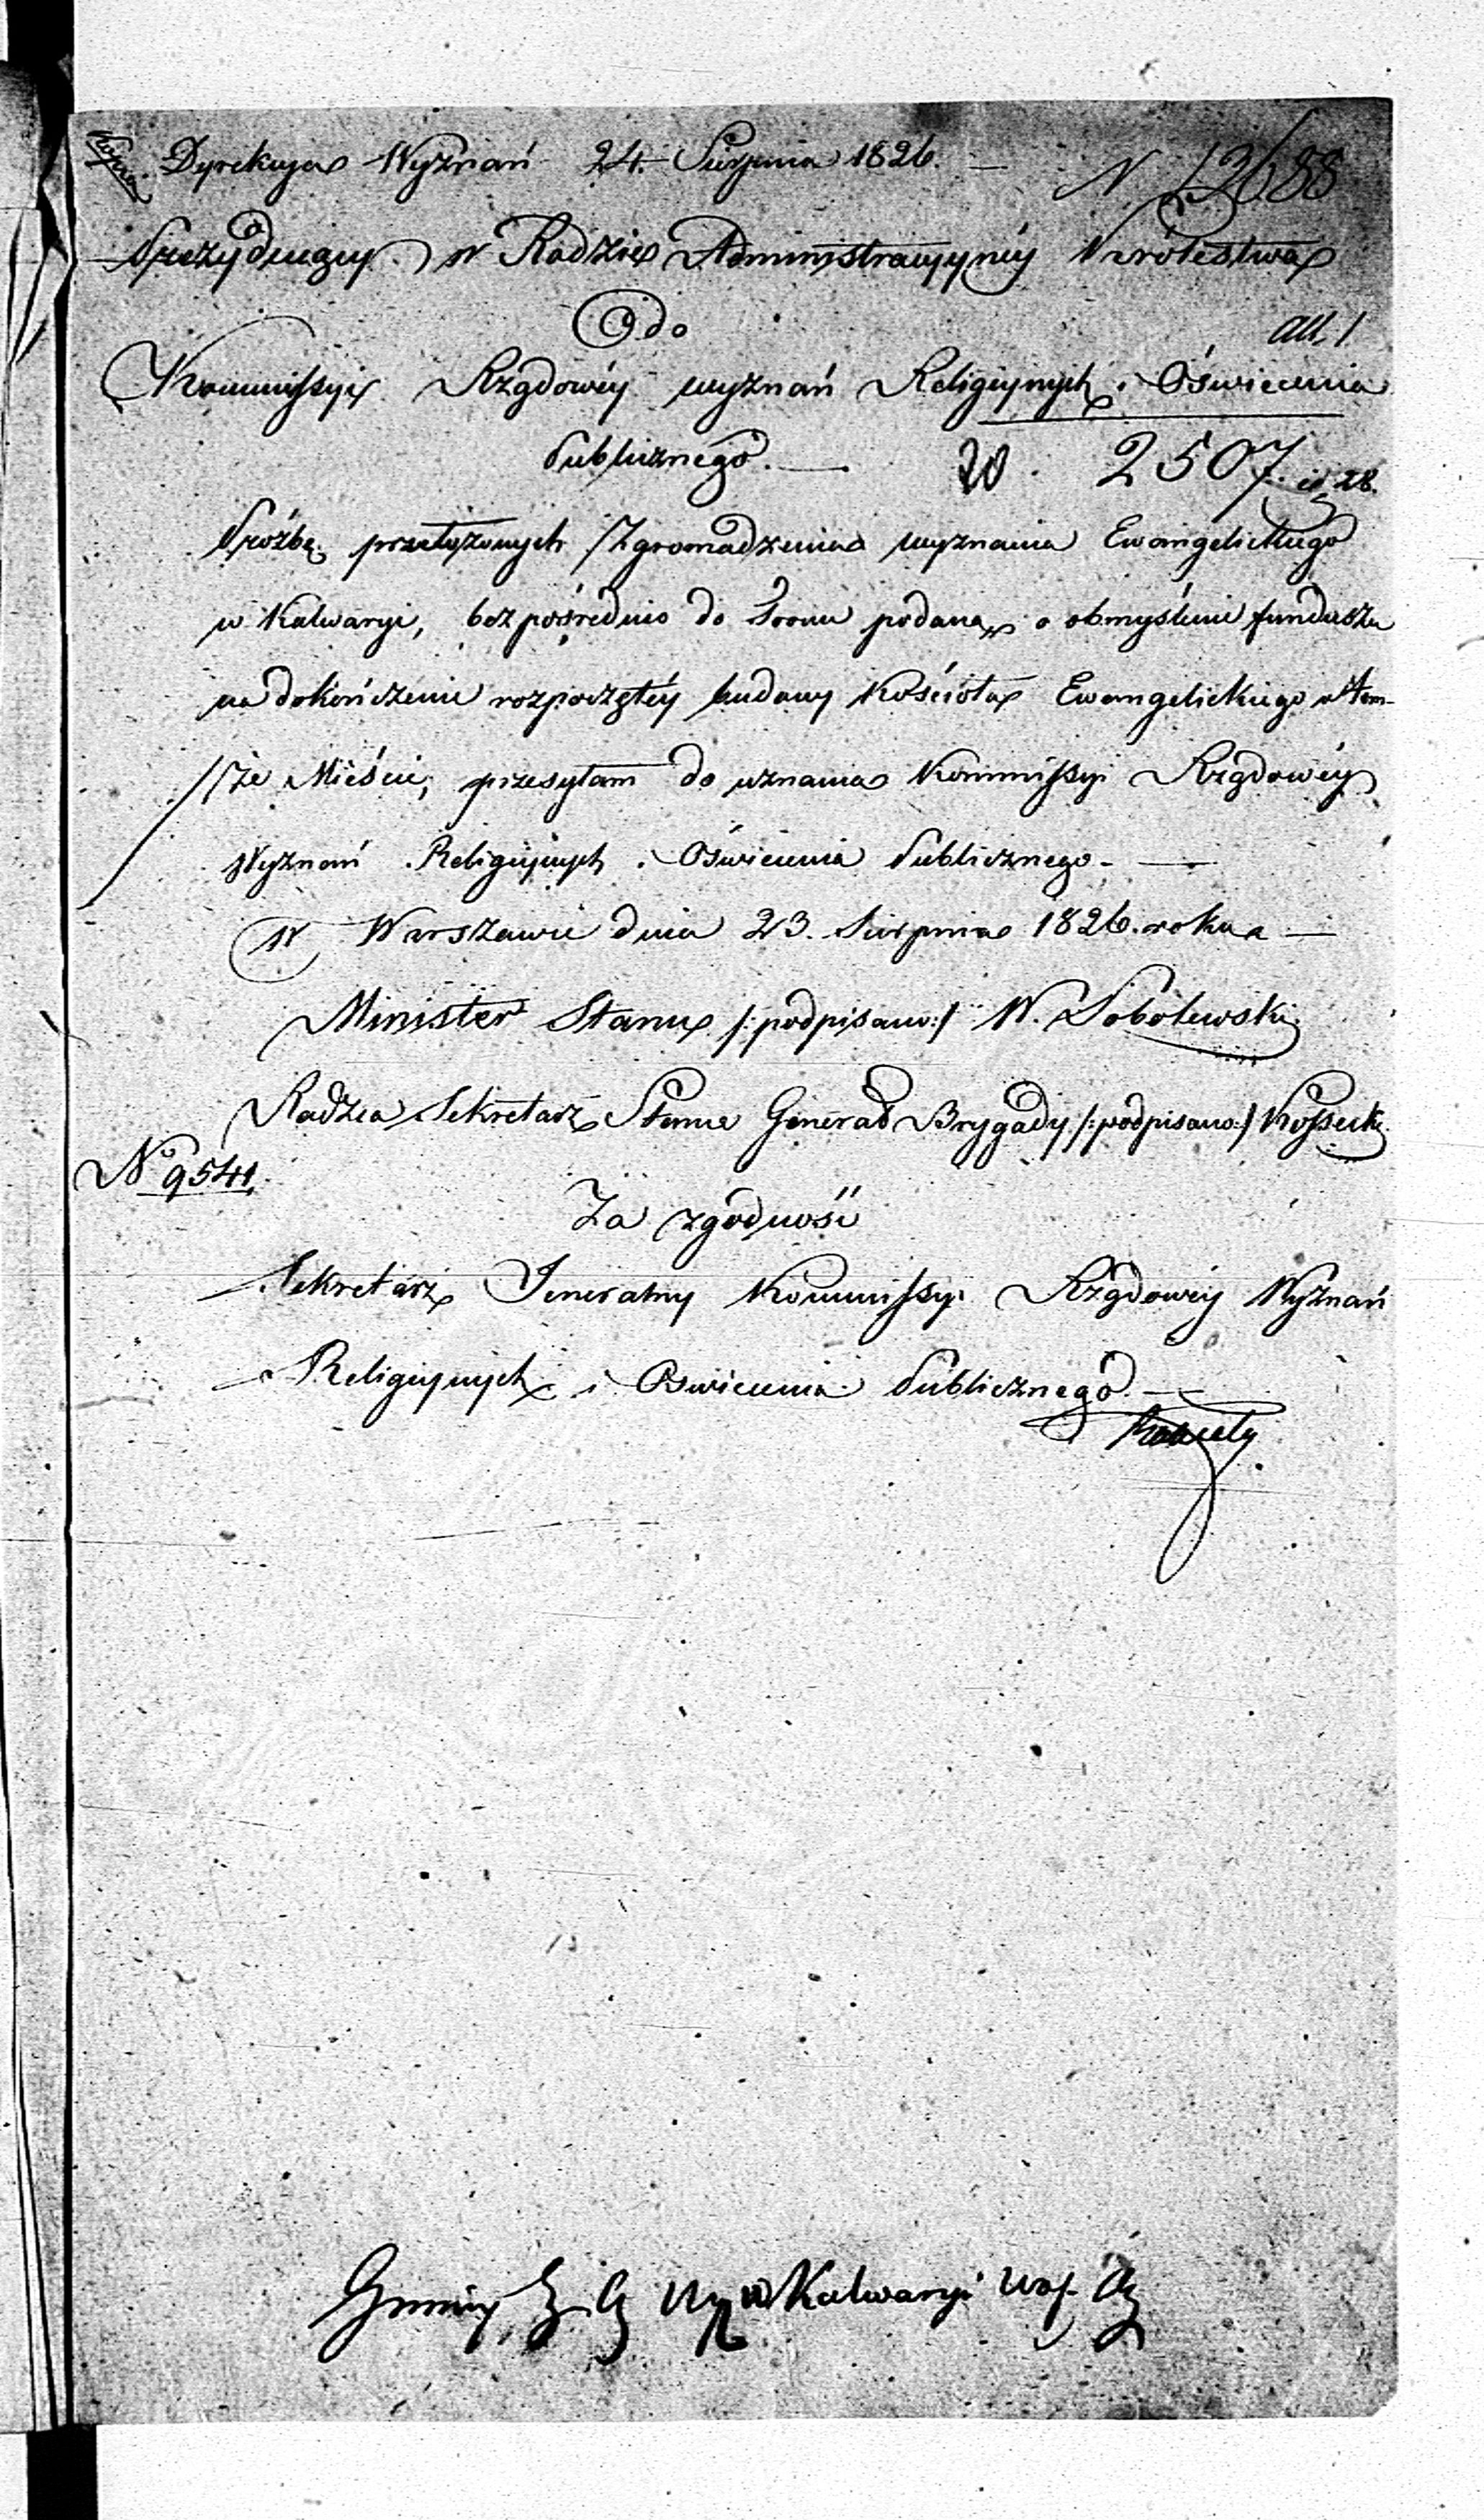 Kopia. Dyrekcya Wyznań 24. Sierpnia 1826. — N 13688
Prezyduiący w Radzie Administracyyney Królestwa
Do
all. 1
Kommissyi Rządowéy wyznań Religiynych i Oświecenia
Publicznego. — 20. 2507.
Proźbę przełożonych Zgromadzenia wyznania Ewangelickiego
w Kalwaryi, bezpośrednio do Tronu podaną o obmyślenie funduszu
na dokończenie rozpoczętéy budowy Kościoła Ewangelickiego w tem-
że Mieście, przesyłam do uznania Kommissyi Rządowéy
Wyznań Religiynych i Oświecenia Publicznego. —
w Warszawie dnia 23. Sierpnia 1826. roku —
Minister Stanu /:podpisano:/ W. Sobolewski
Radzca Sekretarz Stanu Generał Brygady /:podpisano:/ Kossecki
No 9541.
Za zgodność
Sekretarz Jeneralny Kommissyi Rządowéy Wyznań
Religiynych i Oswiecenia Publicznego. —
Gminy w Kalwaryi Woj.